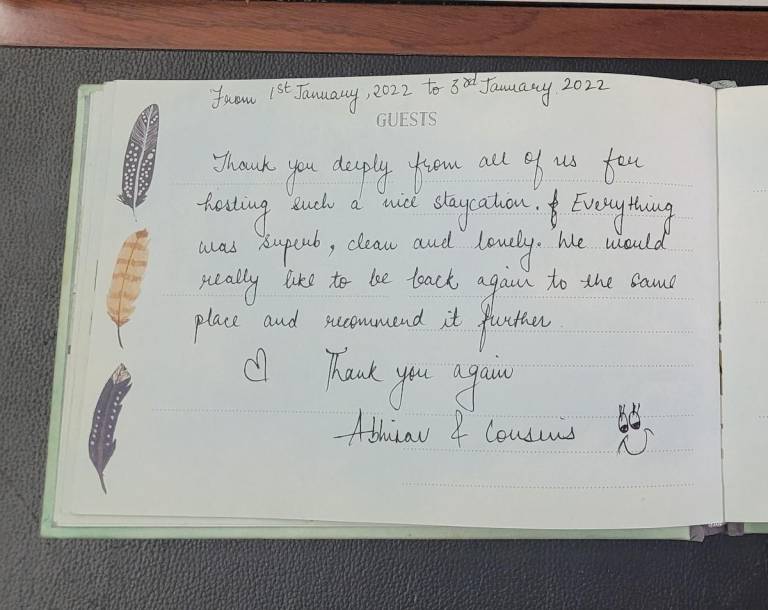 From 1st January, 2022 to 3rd January 2022
GUESTS
Thank you deeply from all of us for
hosting such a nice staycation. Everything
was superb, clean and lovely. We would
really like to be back again to the same
place and recommend it further.
Thank you again
Abhinav & Cousins